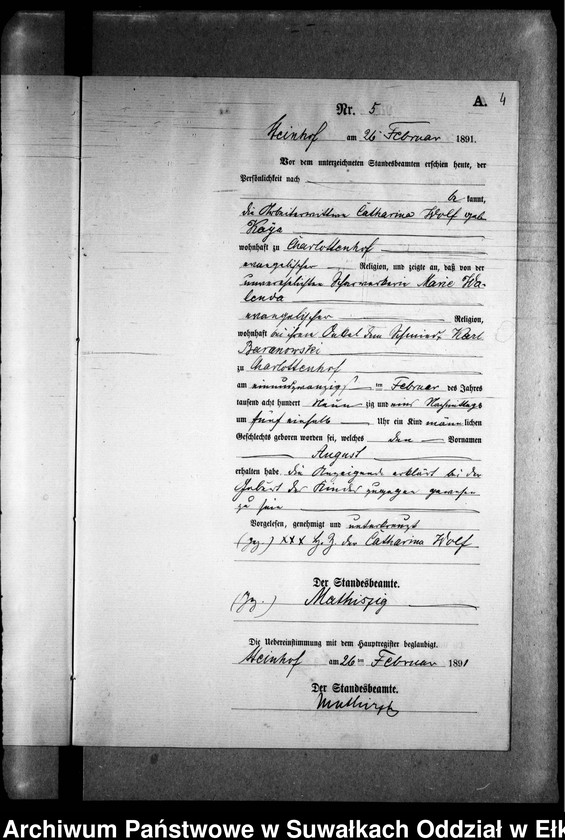 A. 4
Nr. 5
Steinhof am 26 Februar 1891.
Vor dem unterzeichneten Standesbeamten erschien heute, der
Persönlichkeit nach
be kannt,
die Arbeiterwittwe Catharina Wolf geb.
wohnhaft zu Charlottenhof
evangelischer Religion, und zeigte an, daß von der
unverehelichten Scharwerkerin Marie Wa-
lenda
evangelischer Religion,
wohnhaft bei ihrem Onkel dem Schmied Karl
Baranowski
zu Charlottenhof
am einundzwanzig ten Februar des Jahres
tausend acht hundert neun zig und eins Nachmittags
um fünf einhalb Uhr ein Kind männ lichen
Geschlechts geboren worden sei, welches den Vornamen
August
erhalten habe. die Anzeigende erklärt bei der
Geburt des Kindes zugegen gewesen
zu sein
Vorgelesen, genehmigt und unterkreuzt
(gez.) XXX Hz. der Catharina Wolf
Der Standesbeamte.
(gez.) Mathiszig
Die Uebereinstimmung mit dem Hauptregister beglaubigt.
Steinhof am 26 ten Februar 1891
Der Standesbeamte.
Mathiszig
Archiwum Państwowe w Suwałkach Oddział w Ełk